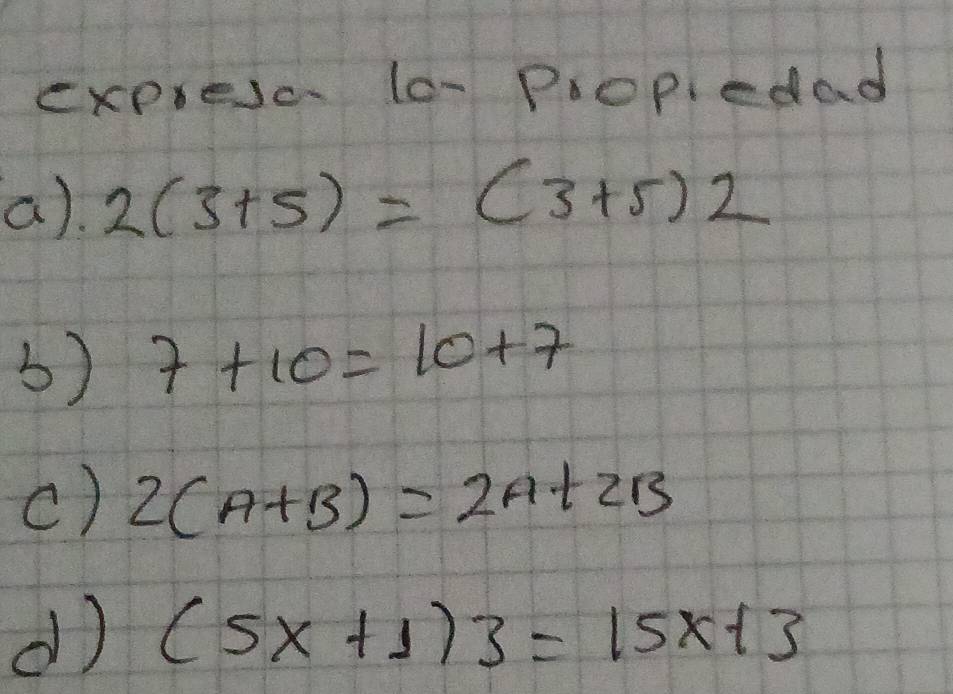 expresa la Propiedad
a). 2(3+5) = (3+5)2
b) 7+10=10+7
c) 2(A+B) = 2A+2B
d) (5x+1)3=15x+3